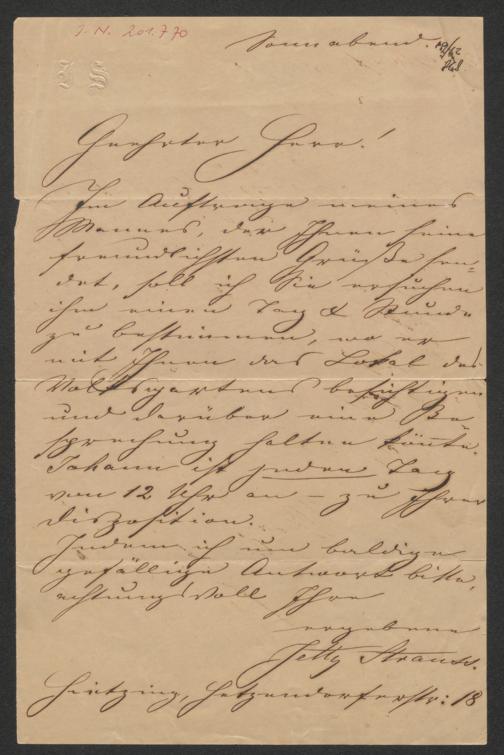 I. N. 201.770
Sonnabend.
J S
Geehrter Herr!
Im Auftrage meines
Mannes, der Ihnen seine
freundlichsten Grüße sen-
det, soll ich Sie ersuchen
ihm einen Tag & Stunde
zu bestimmen, wo er
mit Ihnen das Lokal des
Volksgartens besichtigen
und darüber eine Be
sprechung halten könnte.
Johann ist jeden Tag
von 12 Uhr an – zu Ihrer
Disposition.
Indem ich um baldige
gefällige Antwort bitte,
achtungsvoll Ihre
ergebene
Jetty Strauss.
Hietzing, Hetzendorferstr: 18